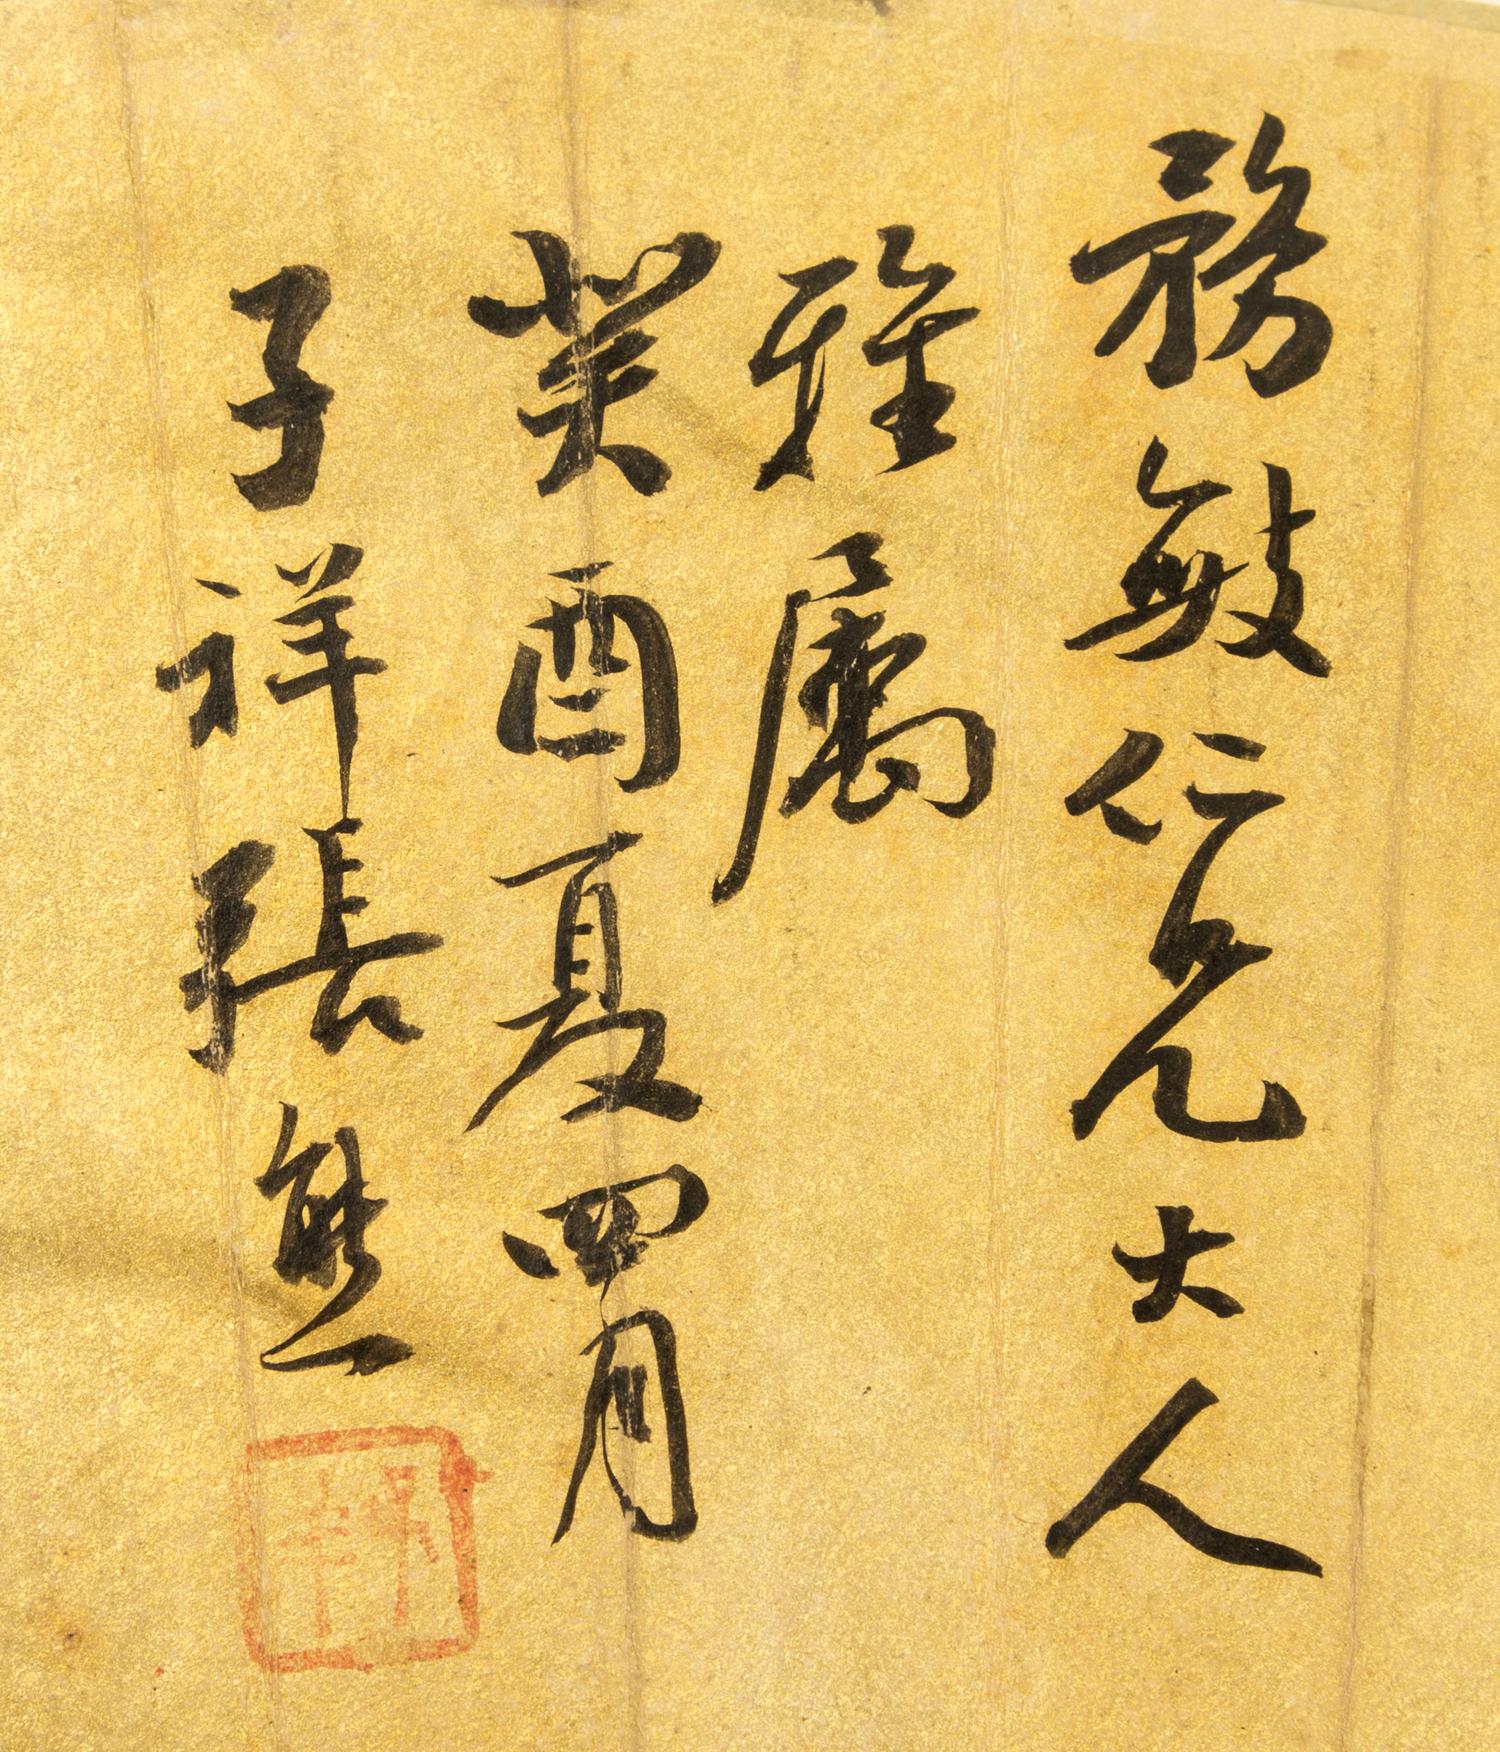 務敏仁兄大人
雅屬
癸酉夏四月
子祥張熊